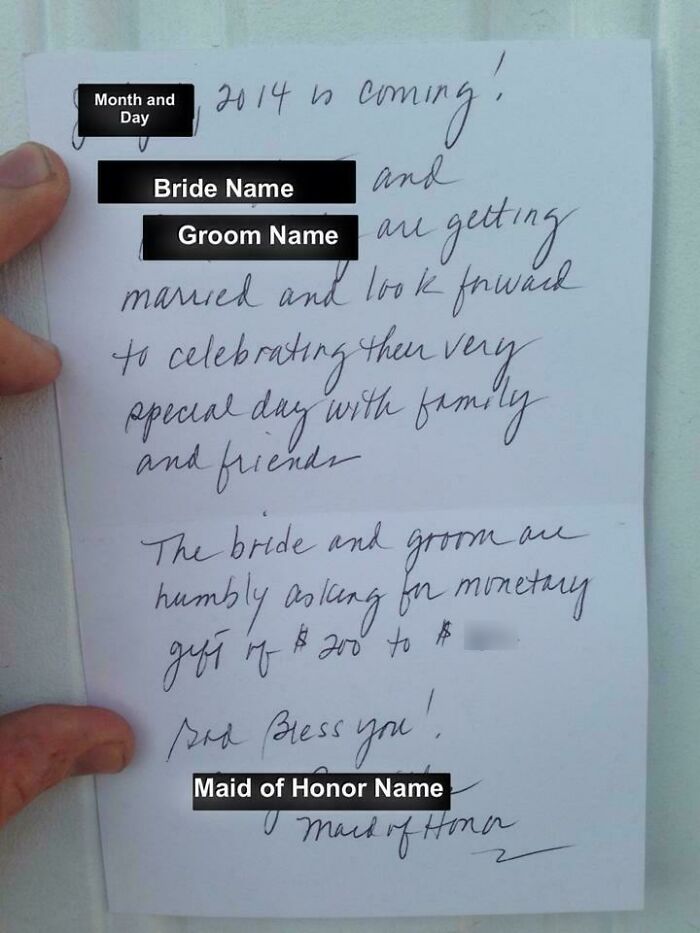 Month and Day, 2014 is coming!
Bride Name and
Groom Name are getting
married and look forward
to celebrating their very
special day with family
and friends
The bride and groom are
humbly asking for monetary
gift of $200 to $
God Bless you!
Maid of Honor Name
Maid of Honor